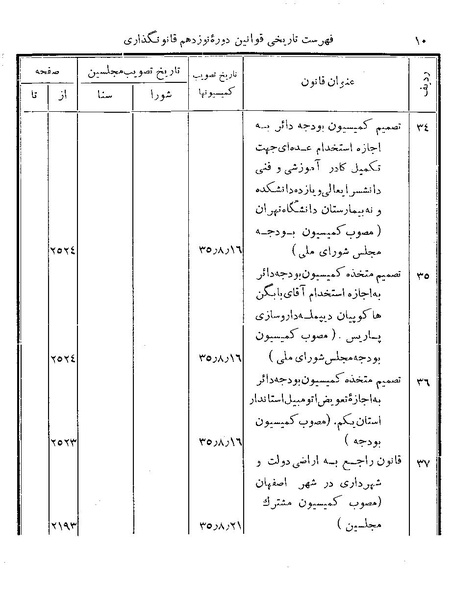 ۱۰ فهرست تاریخی قوانین دورهٔ نوزدهم قانونگذاری
ردیف عنوان قانون تاریخ تصویب کمیسیونها تاریخ تصویب مجلسین صفحه
شورا سنا از تا
۳۴ تصمیم کمیسیون بودجه دائر به
اجازه استخدام عده‌ای جهت
تکمیل کادر آموزشی و فنی
دانشسرایعالی و یازده دانشکده
و نه بیمارستان دانشگاه تهران
( مصوب کمیسیون بودجه
مجلس شورای ملی ) ۳۵٫۸٫۱۶ ۲۵۲۴
۳۵ تصمیم متخذه کمیسیون بودجه دائر
به اجازه استخدام آقای بابگن
هاکوپیان دیپلمه داروسازی
پاریس . ( مصوب کمیسیون
بودجه مجلس شورای ملی ) ۳۵٫۸٫۱۶ ۲۵۲۴
۳۶ تصمیم متخذه کمیسیون بودجه دائر
به اجازهٔ تعویض اتومبیل استاندار
استان یکم. ( مصوب کمیسیون
بودجه ) ۳۵٫۸٫۱۶ ۲۵۲۳
۳۷ قانون راجع به اراضی دولت و
شهرداری در شهر اصفهان
( مصوب کمیسیون مشترک
مجلسین ) ۳۵٫۸٫۲۱ ۲۱۹۳